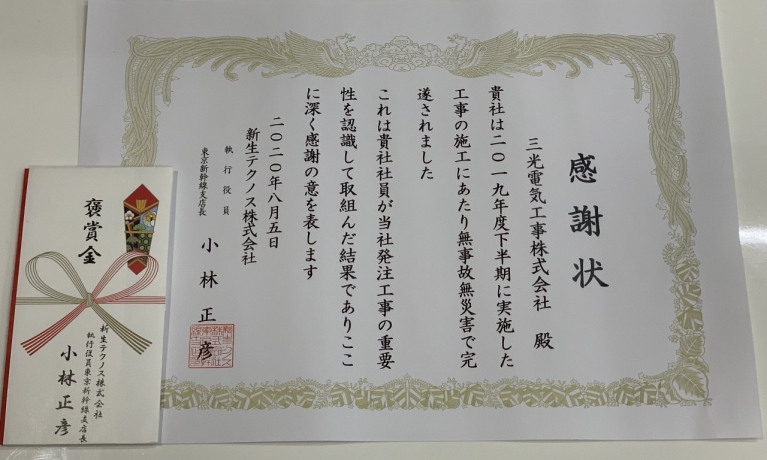 感謝状
三光電気工事株式会社 殿
貴社は二〇一九年度下半期に実施した
工事の施工にあたり無事故無災害で完
遂されました
これは貴社社員が当社発注工事の重要
性を認識して取組んだ結果でありここ
に深く感謝の意を表します
二〇二〇年八月五日
新生テクノス株式会社
執行役員
東京新幹線支店長
小林正彦
褒賞金
新生テクノス株式会社
執行役員東京新幹線支店長
小林正彦